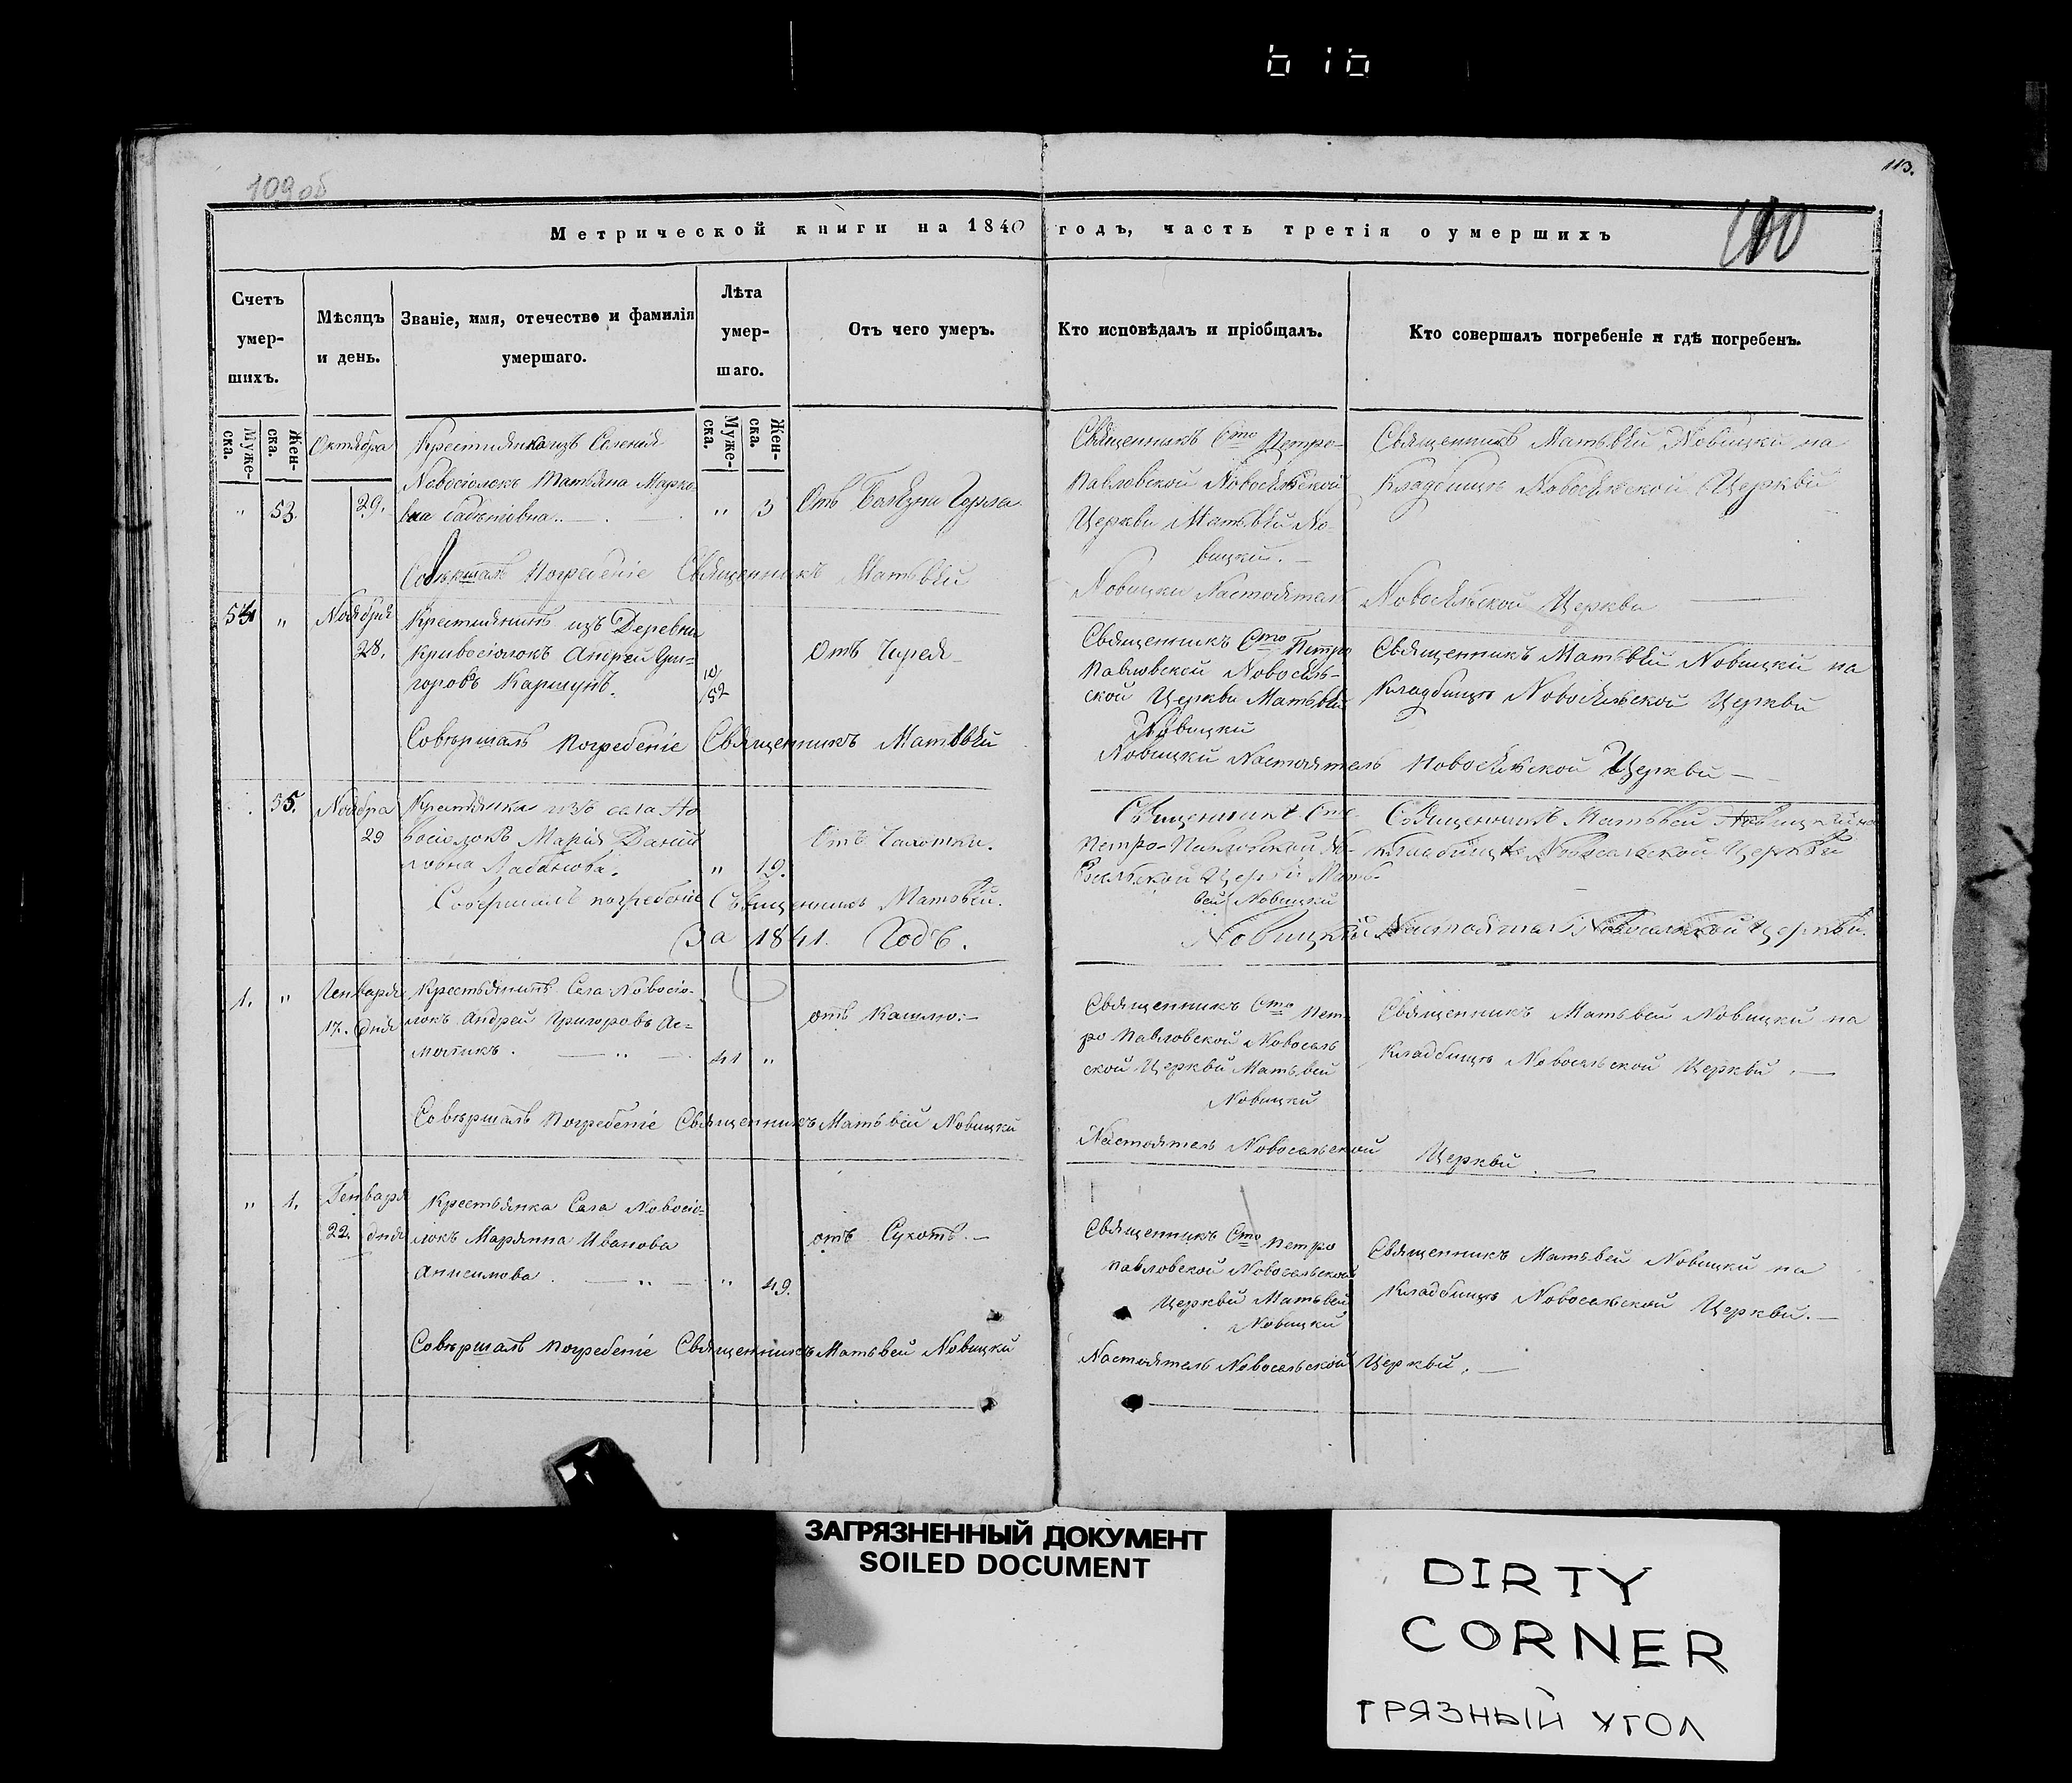 109 об
113.
110
Метрической книги на 1840 годъ, часть третія о умершихъ
Счетъ умер-шихъ.
Мѣсяцъ и день.
Званіе, имя, отечество и фамилія умершаго.
Лѣта умер-шаго.
Отъ чего умеръ.
Кто исповѣдалъ и пріобщалъ.
Кто совершалъ погребеніе и гдѣ погребенъ.
Муже-ска.
Жен-ска.
Муже-ска.
Жен-ска.
Октября
Новосіолокъ Матвѣна Марко-
" 53. 29.
" 3
Отъ
Священникъ Сто Петро-
Павловской Новосѣльской
Церкви Матьвѣй Но-
вицкій. —
Священникъ Матьвѣй Новицкій на
Кладбищѣ Новосѣльской Церквй
Совѣршалъ Погребеніе Священникъ Матьвѣй
Новицкй Настоятель Новосѣльской Церкви
54 " Ноября
28.
Крестиянинъ изъ Деревни
Кривосіолокъ Андрей Гри-
горовъ Каршунъ.
52
Отъ Чирея
Священникъ Сто Петро
Павловской Новосѣль-
ской Церкви Матьвѣй
Новицкй
Священникъ Матьвѣй Новицкій на
Кладбищѣ Новосѣльской Церквй
Совѣршалъ Погребеніе Священникъ Матьвѣй
Новицкй Настоятель Новосѣльской Церквй —
55. Ноября
29
Крестьянка изъ села Но
восіолокъ Марія Данїи
ловна Лабанова.
" 19.
Отъ Чахотки.
Священникъ Сто
Петро-Павловской Но-
восельской Церкви Мать-
вей Новицкй
Священникъ Матьвей Новицкй на
кладбищѣ Новосельской Церквй
Совершалъ погребеніе Священникъ Матьвѣй.
Новицкій Настоятель Новосельской Церквй.
За 1841. Годъ.
1. " Генваря
17. дня
Крестьянинъ Села Новосіо-
локъ Андрей Григоровъ Ас-
41 "
отъ Кашлю: —
Священникъ Сто Пет-
ро Павловской Новосель
ской Церквй Матьвей
Новицкй
Священникъ Матьвей Новицкй на
Кладбищѣ Новосельской Церквй. —
Совѣршалъ Погребеніе Священникъ Матьвей Новицкй
Настоятель Новосельской Церквй. —
" 1. Генваря
22. дня
Крестьянка Села Новосіо-
локъ Марянна Иванова
Анисимова. — " —
" 49.
отъ Сухотъ. —
Священникъ Сто Петро
Павловской Новосельской
Церквй Матьвей
Новицкй
Священникъ Матьвей Новицкй на
Кладбищѣ Новосельской Церквй. —
Совѣршалъ Погребеніе Священникъ Матьвей Новицкй
Настоятель Новосельской Церквй. —
ЗАГРЯЗНЕННЫЙ ДОКУМЕНТ
SOILED DOCUMENT
DIRTY
CORNER
ГРЯЗНЫЙ УГОЛ